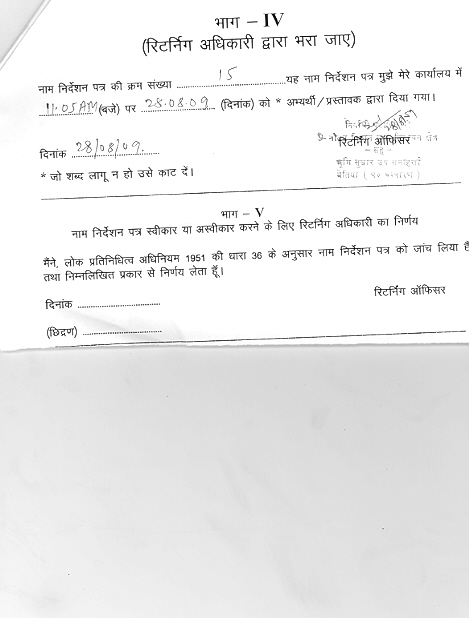 भाग – IV
(रिटर्निग अधिकारी द्वारा भरा जाए)
नाम निर्देशन पत्र की क्रम संख्या 15 यह नाम निर्देशन पत्र मुझे मेरे कार्यालय में
11.05 AM (बजे) पर 28.08.09 (दिनांक) को * अभ्यर्थी / प्रस्तावक द्वारा दिया गया।
28/8/09
रिटर्निंग ऑफिसर
दिनांक 28/08/09.
भूमि सुधार उप समाहर्ता
* जो शब्द लागू न हो उसे काट दें।
बेतिया
भाग – V
नाम निर्देशन पत्र स्वीकार या अस्वीकार करने के लिए रिटर्निग अधिकारी का निर्णय
मैंने, लोक प्रतिनिधित्व अधिनियम 1951 की धारा 36 के अनुसार नाम निर्देशन पत्र को जांच लिया है
तथा निम्नलिखित प्रकार से निर्णय लेता हूँ।
रिटर्निंग ऑफिसर
दिनांक
(छिद्रण)